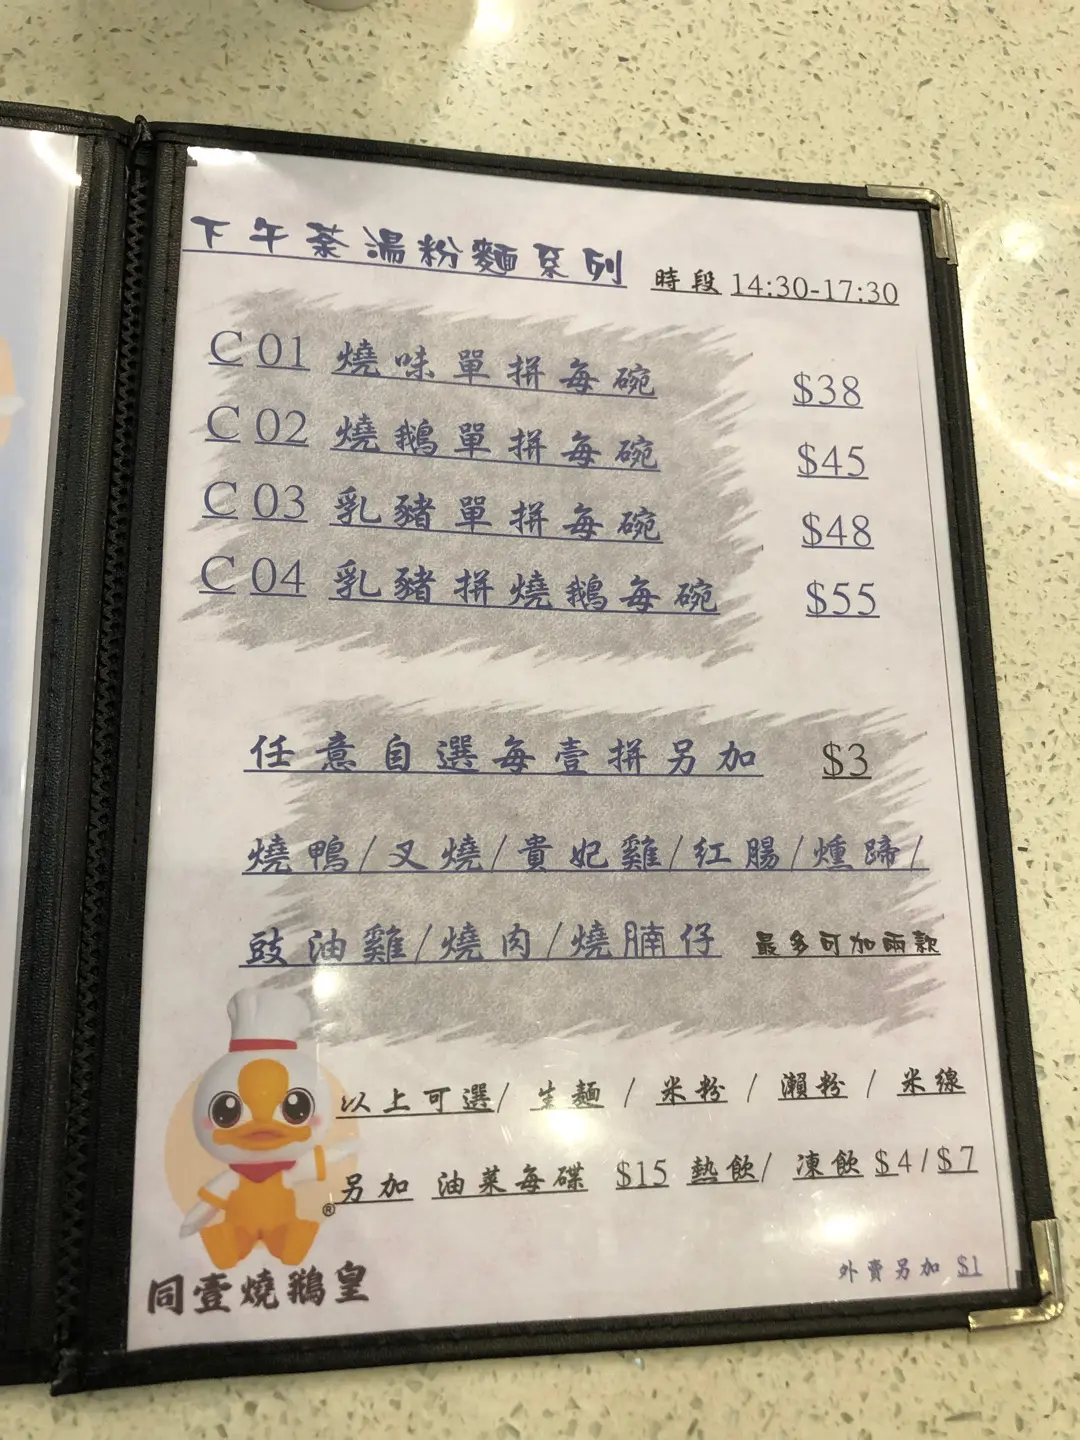 下午茶湯粉麵系列 時段 14:30-17:30
C 01 燒味單拼每碗 $38
C 02 燒鵝單拼每碗 $45
C 03 乳豬單拼每碗 $48
C 04 乳豬拼燒鵝每碗 $55
任意自選每壹拼另加 $3
燒鴨/叉燒/貴妃雞/紅腸/燻蹄/
豉油雞/燒肉/燒腩仔 最多可加兩款
以上可選/ 生麵 / 米粉 / 瀨粉 / 米線
另加 油菜每碟 $15 熱飲/ 凍飲 $4/$7
®
同壹燒鵝皇
外賣另加 $1